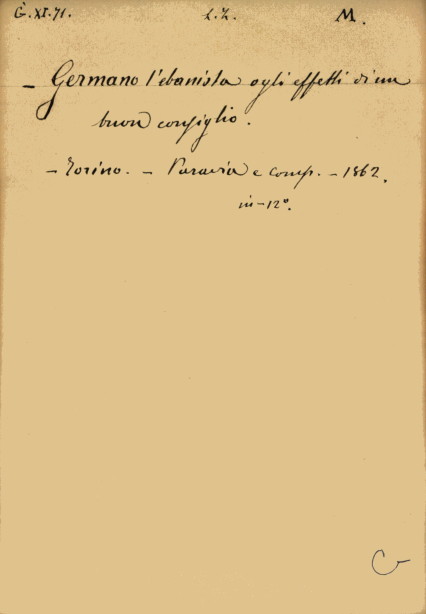 G.XI.71. L.Z. M.
- Germano l'ebanista o gli effetti di un
buon consiglio.
- Torino. - Paravia e comp. - 1862.
in-12º.